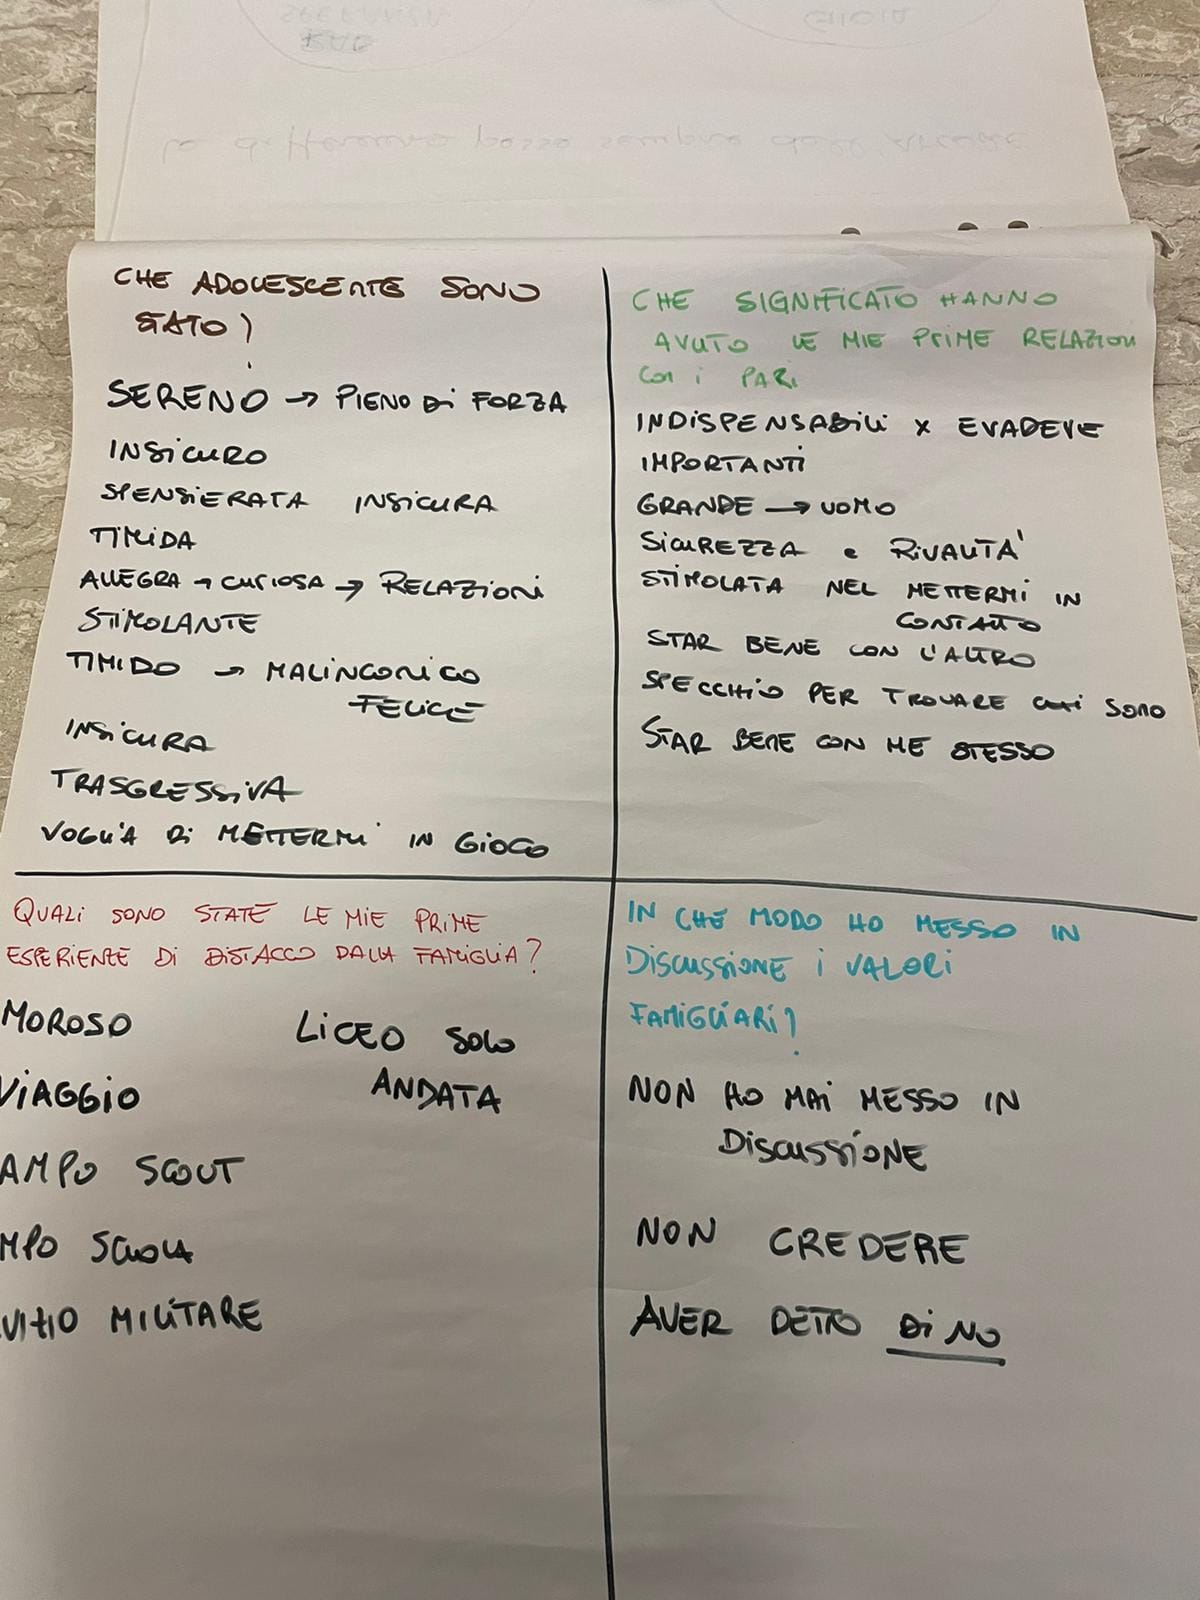 CHE ADOLESCENTE SONO
STATO?
SERENO → PIENO Di FORZA
INSICURO
SPENSIERATA INSICURA
TIMIDA
ALLEGRA → CURIOSA → RELAZIONI
STIMOLANTE
TIMIDO → MALINCONICO
FELICE
INSICURA
TRASGRESSIVA
VOGLIA Di METTERMI IN GIOCO
CHE SIGNIFICATO HANNO
AVUTO LE MIE PRIME RELAZIONI
CON i PARI
INDISPENSABILI X EVADEVE
IMPORTANTI
GRANDE → UOMO
SICUREZZA e RIVALITA'
STIMOLATA NEL METTERMI IN
CONTATTO
STAR BENE CON L'ALTRO
SPECCHIO PER TROVARE CHI SONO
STAR BENE CON ME STESSO
QUALI SONO STATE LE MIE PRIME
ESPERIENZE Di DISTACCO DALLA FAMIGLIA?
MOROSO
VIAGGIO
AMPO SCOUT
MPO SCUOLA
VIZIO MILITARE
LICEO SOLO
ANDATA
IN CHE MODO HO MESSO IN
DISCUSSIONE I VALORI
FAMIGLIARI?
NON HO MAI MESSO IN
DISCUSSIONE
NON CREDERE
AVER DETTO Di NO